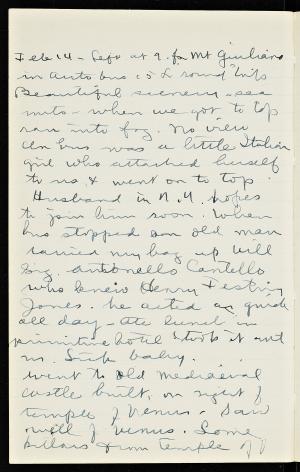 Feb 14 - Left at 9. for Mt Giuliano
in auto bus 15 L round trip
Beautiful scenery - sea
mts - when we got to top
ran into fog. No view
On bus was a little Italian
girl who attached herself
to us & went on to top.
Husband in N.Y. hopes
to join him soon. When
bus stopped an old man
carried my bag up hill
Sig. Antonello Cantello
who knew Henry Festing
Jones. he acted as guide
all day - ate lunch in
primitive hotel
us. Sick baby.
went to old mediaeval
castle built on right of
temple of Venus - Saw
well of Venus. Some
pillars from temple of